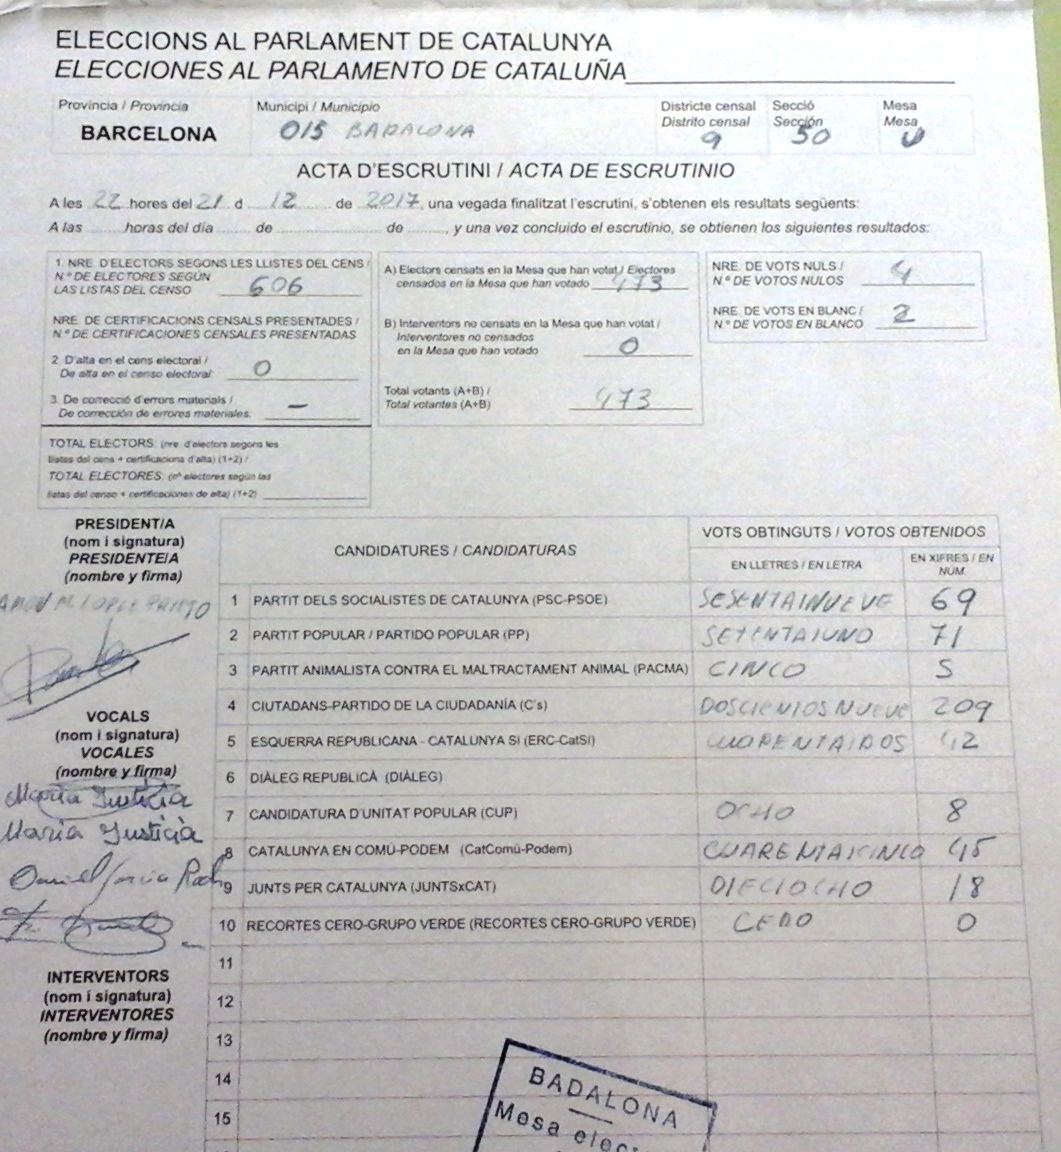 ELECCIONS AL PARLAMENT DE CATALUNYA
ELECCIONES AL PARLAMENTO DE CATALUÑA
Província / Provincia
BARCELONA
Municipi / Municipio
015 BADALONA
Districte censal
Distrito censal
9
Secció
Sección
50
Mesa
Mesa
U
ACTA D'ESCRUTINI / ACTA DE ESCRUTINIO
A les 22 hores del 21 d 12 de 2017, una vegada finalitzat l'escrutini, s'obtenen els resultats següents:
A las ...... horas del día ........ de ........ de ......, y una vez concluido el escrutinio, se obtienen los siguientes resultados:
1. NRE. D'ELECTORS SEGONS LES LLISTES DEL CENS /
N.º DE ELECTORES SEGÚN
LAS LISTAS DEL CENSO 606
NRE. DE CERTIFICACIONS CENSALS PRESENTADES /
N.º DE CERTIFICACIONES CENSALES PRESENTADAS
2. D'alta en el cens electoral /
De alta en el censo electoral: 0
3. De correcció d'errors materials /
De corrección de errores materiales: –
TOTAL ELECTORS: (nre. d'electors segons les
llistes del cens + certificacions d'alta) (1+2) /
TOTAL ELECTORES: (nº electores según las
listas del censo + certificaciones de alta) (1+2)
A) Electors censats en la Mesa que han votat / Electores
censados en la Mesa que han votado 473
B) Interventors no censats en la Mesa que han votat /
Interventores no censados
en la Mesa que han votado 0
Total votants (A+B) /
Total votantes (A+B) 473
NRE. DE VOTS NULS /
N.º DE VOTOS NULOS 4
NRE. DE VOTS EN BLANC /
N.º DE VOTOS EN BLANCO 2
PRESIDENT/A
(nom i signatura)
PRESIDENTE/A
(nombre y firma)
VOCALS
(nom i signatura)
VOCALES
(nombre y firma)
María Justicia
María Justicia
INTERVENTORS
(nom i signatura)
INTERVENTORES
(nombre y firma)
CANDIDATURES / CANDIDATURAS
VOTS OBTINGUTS / VOTOS OBTENIDOS
EN LLETRES / EN LETRA
EN XIFRES / EN
NÚM.
1 PARTIT DELS SOCIALISTES DE CATALUNYA (PSC-PSOE) SESENTAINUEVE 69
2 PARTIT POPULAR / PARTIDO POPULAR (PP) SETENTAIUNO 71
3 PARTIT ANIMALISTA CONTRA EL MALTRACTAMENT ANIMAL (PACMA) CINCO 5
4 CIUTADANS-PARTIDO DE LA CIUDADANÍA (C's) DOSCIENTOS NUEVE 209
5 ESQUERRA REPUBLICANA - CATALUNYA SÍ (ERC-CatSí) CUARENTAIDOS 42
6 DIÀLEG REPUBLICÀ (DIÀLEG)
7 CANDIDATURA D'UNITAT POPULAR (CUP) OCHO 8
8 CATALUNYA EN COMÚ-PODEM (CatComú-Podem) CUARENTAICINCO 45
9 JUNTS PER CATALUNYA (JUNTSxCAT) DIECIOCHO 18
10 RECORTES CERO-GRUPO VERDE (RECORTES CERO-GRUPO VERDE) CERO 0
11
12
13
14
15
BADALONA
Mesa elec